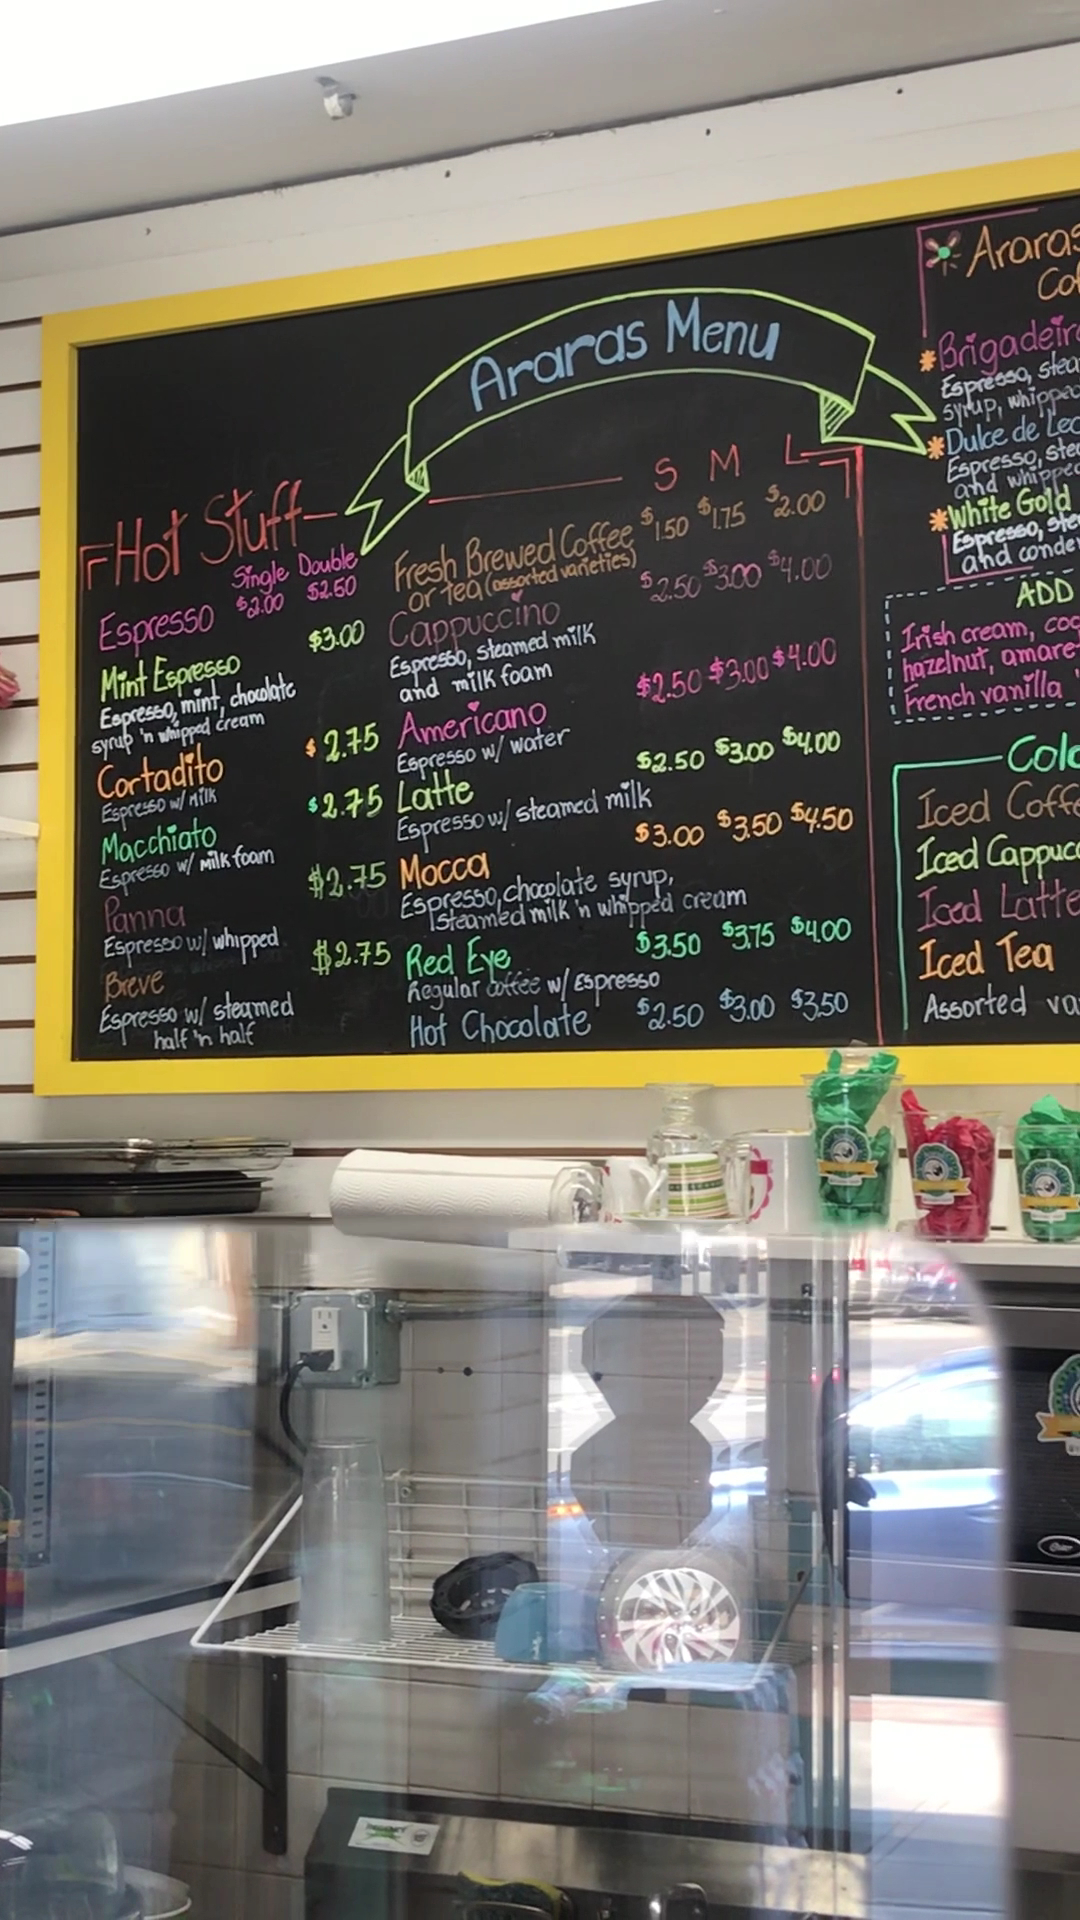 Araras Menu
Hot Stuff
Single Double
Espresso $2.00 $2.50
Mint Espresso $3.00
Espresso, mint, chocolate
syrup 'n whipped cream
Cortadito $2.75
Espresso w/ milk
Macchiato $2.75
Espresso w/ milk foam
Panna $2.75
Espresso w/ whipped
Breve $2.75
Espresso w/ steamed
half 'n half
S M L
Fresh Brewed Coffee $1.50 $1.75 $2.00
or tea (assorted varieties)
Cappuccino $2.50 $3.00 $4.00
Espresso, steamed milk
and milk foam
Americano $2.50 $3.00 $4.00
Espresso w/ water
Latte $2.50 $3.00 $4.00
Espresso w/ steamed milk
Mocca $3.00 $3.50 $4.50
Espresso, chocolate syrup,
steamed milk 'n whipped cream
Red Eye $3.50 $3.75 $4.00
Regular coffee w/ Espresso
Hot Chocolate $2.50 $3.00 $3.50
Araras
Brigadeir
Espresso, stea
syrup, whipped
Dulce de Lec
Espresso, ste
and whipped
White Gold
Espresso, ste
and conde
ADD
Irish cream, coc
hazelnut, amare
French vanilla
Cold
Iced Coffe
Iced Cappucc
Iced Latte
Iced Tea
Assorted va
Oster